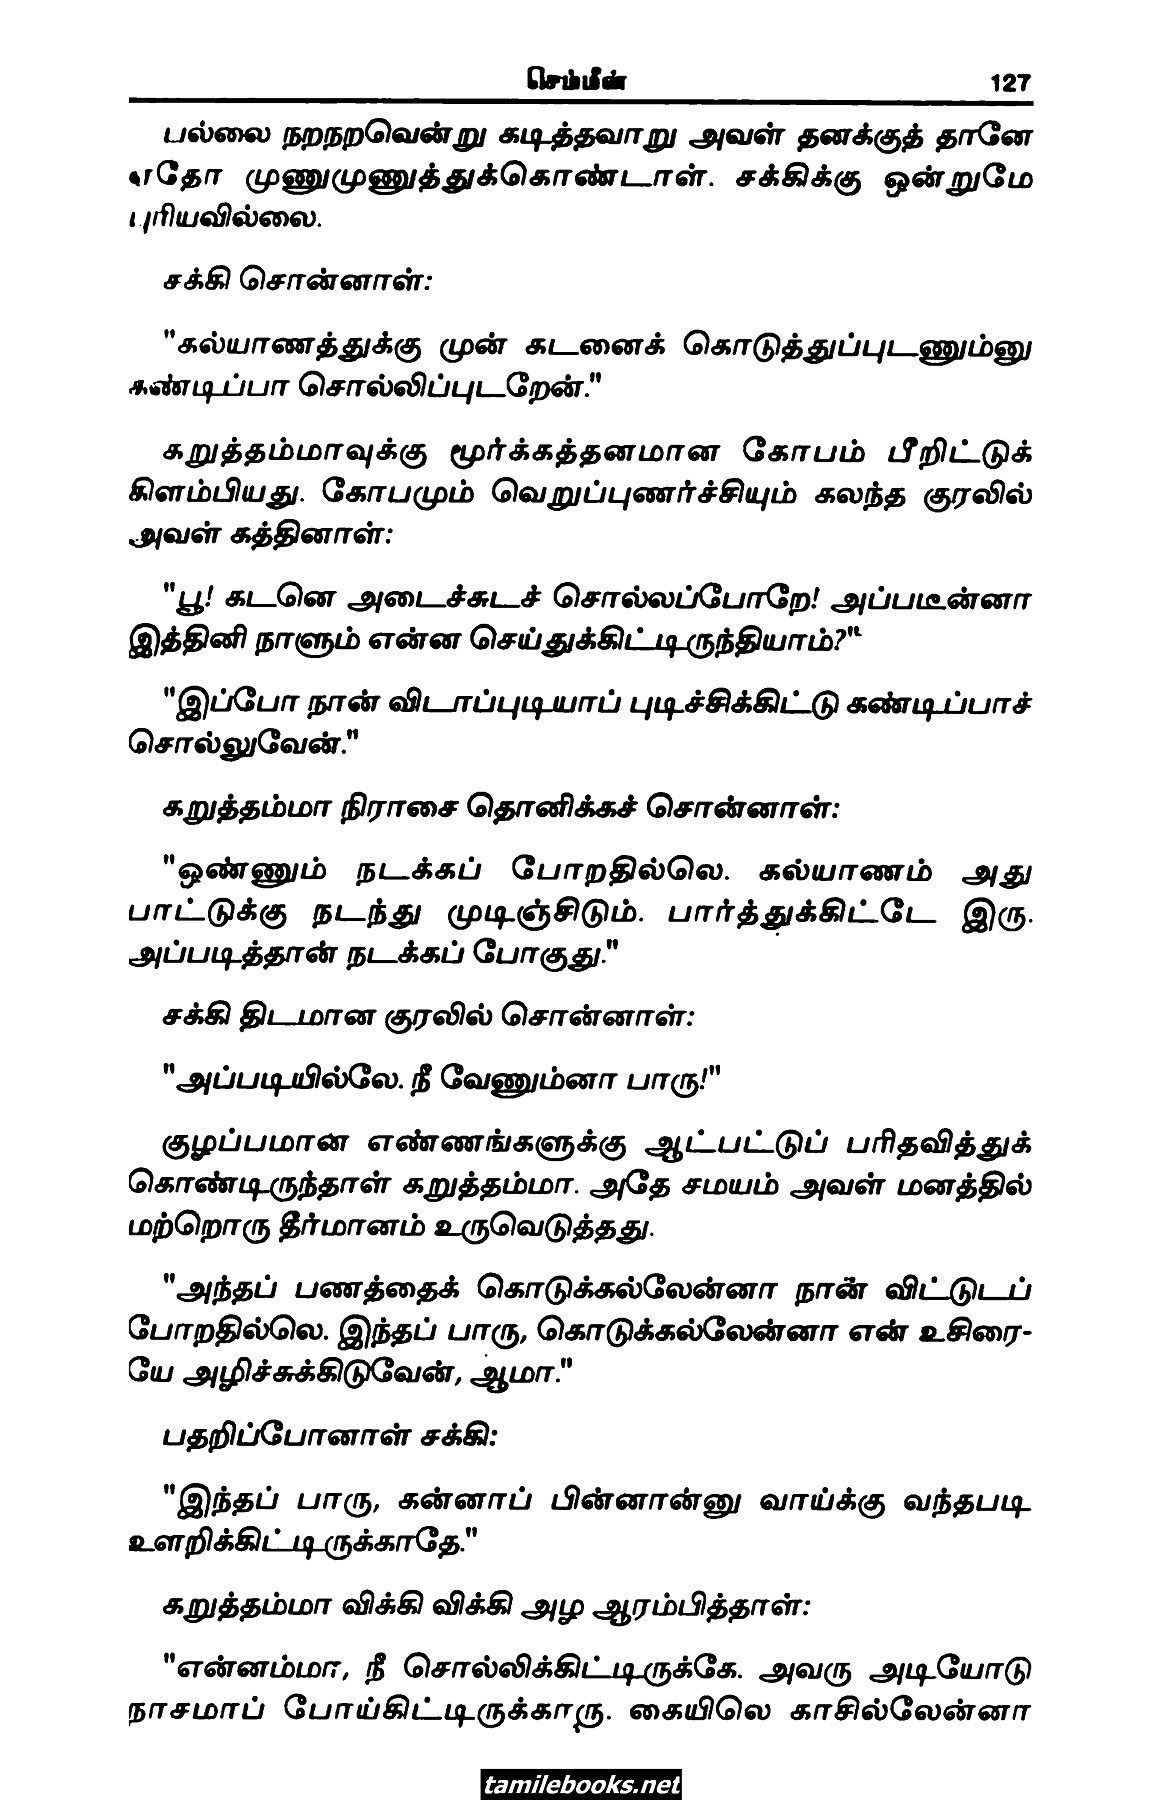 செம்மீன் 127
பல்லை நறநறவென்று கடித்தவாறு அவள் தனக்குத் தானே
ஏதோ முணுமுணுத்துக்கொண்டாள். சக்கிக்கு ஒன்றுமே
புரியவில்லை.
சக்கி சொன்னாள்:
"கல்யாணத்துக்கு முன் கடனைக் கொடுத்துப்புடணும்னு
கண்டிப்பா சொல்லிப்புடறேன்."
கறுத்தம்மாவுக்கு மூர்க்கத்தனமான கோபம் பீறிட்டுக்
கிளம்பியது. கோபமும் வெறுப்புணர்ச்சியும் கலந்த குரலில்
அவள் கத்தினாள்:
"பூ! கடனெ அடைச்சுடச் சொல்லப்போறே! அப்படீன்னா
இத்தினி நாளும் என்ன செய்துக்கிட்டிருந்தியாம்?"
"இப்போ நான் விடாப்புடியாப் புடிச்சிக்கிட்டு கண்டிப்பாச்
சொல்லுவேன்."
கறுத்தம்மா நிராசை தொனிக்கச் சொன்னாள்:
"ஒண்ணும் நடக்கப் போறதில்லெ. கல்யாணம் அது
பாட்டுக்கு நடந்து முடிஞ்சிடும். பார்த்துக்கிட்டே இரு.
அப்படித்தான் நடக்கப் போகுது."
சக்கி திடமான குரலில் சொன்னாள்:
"அப்படியில்லே. நீ வேணும்னா பாரு!"
குழப்பமான எண்ணங்களுக்கு ஆட்பட்டுப் பரிதவித்துக்
கொண்டிருந்தாள் கறுத்தம்மா. அதே சமயம் அவள் மனத்தில்
மற்றொரு தீர்மானம் உருவெடுத்தது.
"அந்தப் பணத்தைக் கொடுக்கல்லேன்னா நான் விட்டுடப்
போறதில்லெ. இந்தப் பாரு, கொடுக்கல்லேன்னா என் உசிரை-
யே அழிச்சுக்கிடுவேன், ஆமா."
பதறிப்போனாள் சக்கி:
"இந்தப் பாரு, கன்னாப் பின்னான்னு வாய்க்கு வந்தபடி
உளறிக்கிட்டிருக்காதே."
கறுத்தம்மா விக்கி விக்கி அழ ஆரம்பித்தாள்:
"என்னம்மா, நீ சொல்லிக்கிட்டிருக்கே. அவரு அடியோடு
நாசமாப் போய்கிட்டிருக்காரு. கையிலெ காசில்லேன்னா
tamilebooks.net